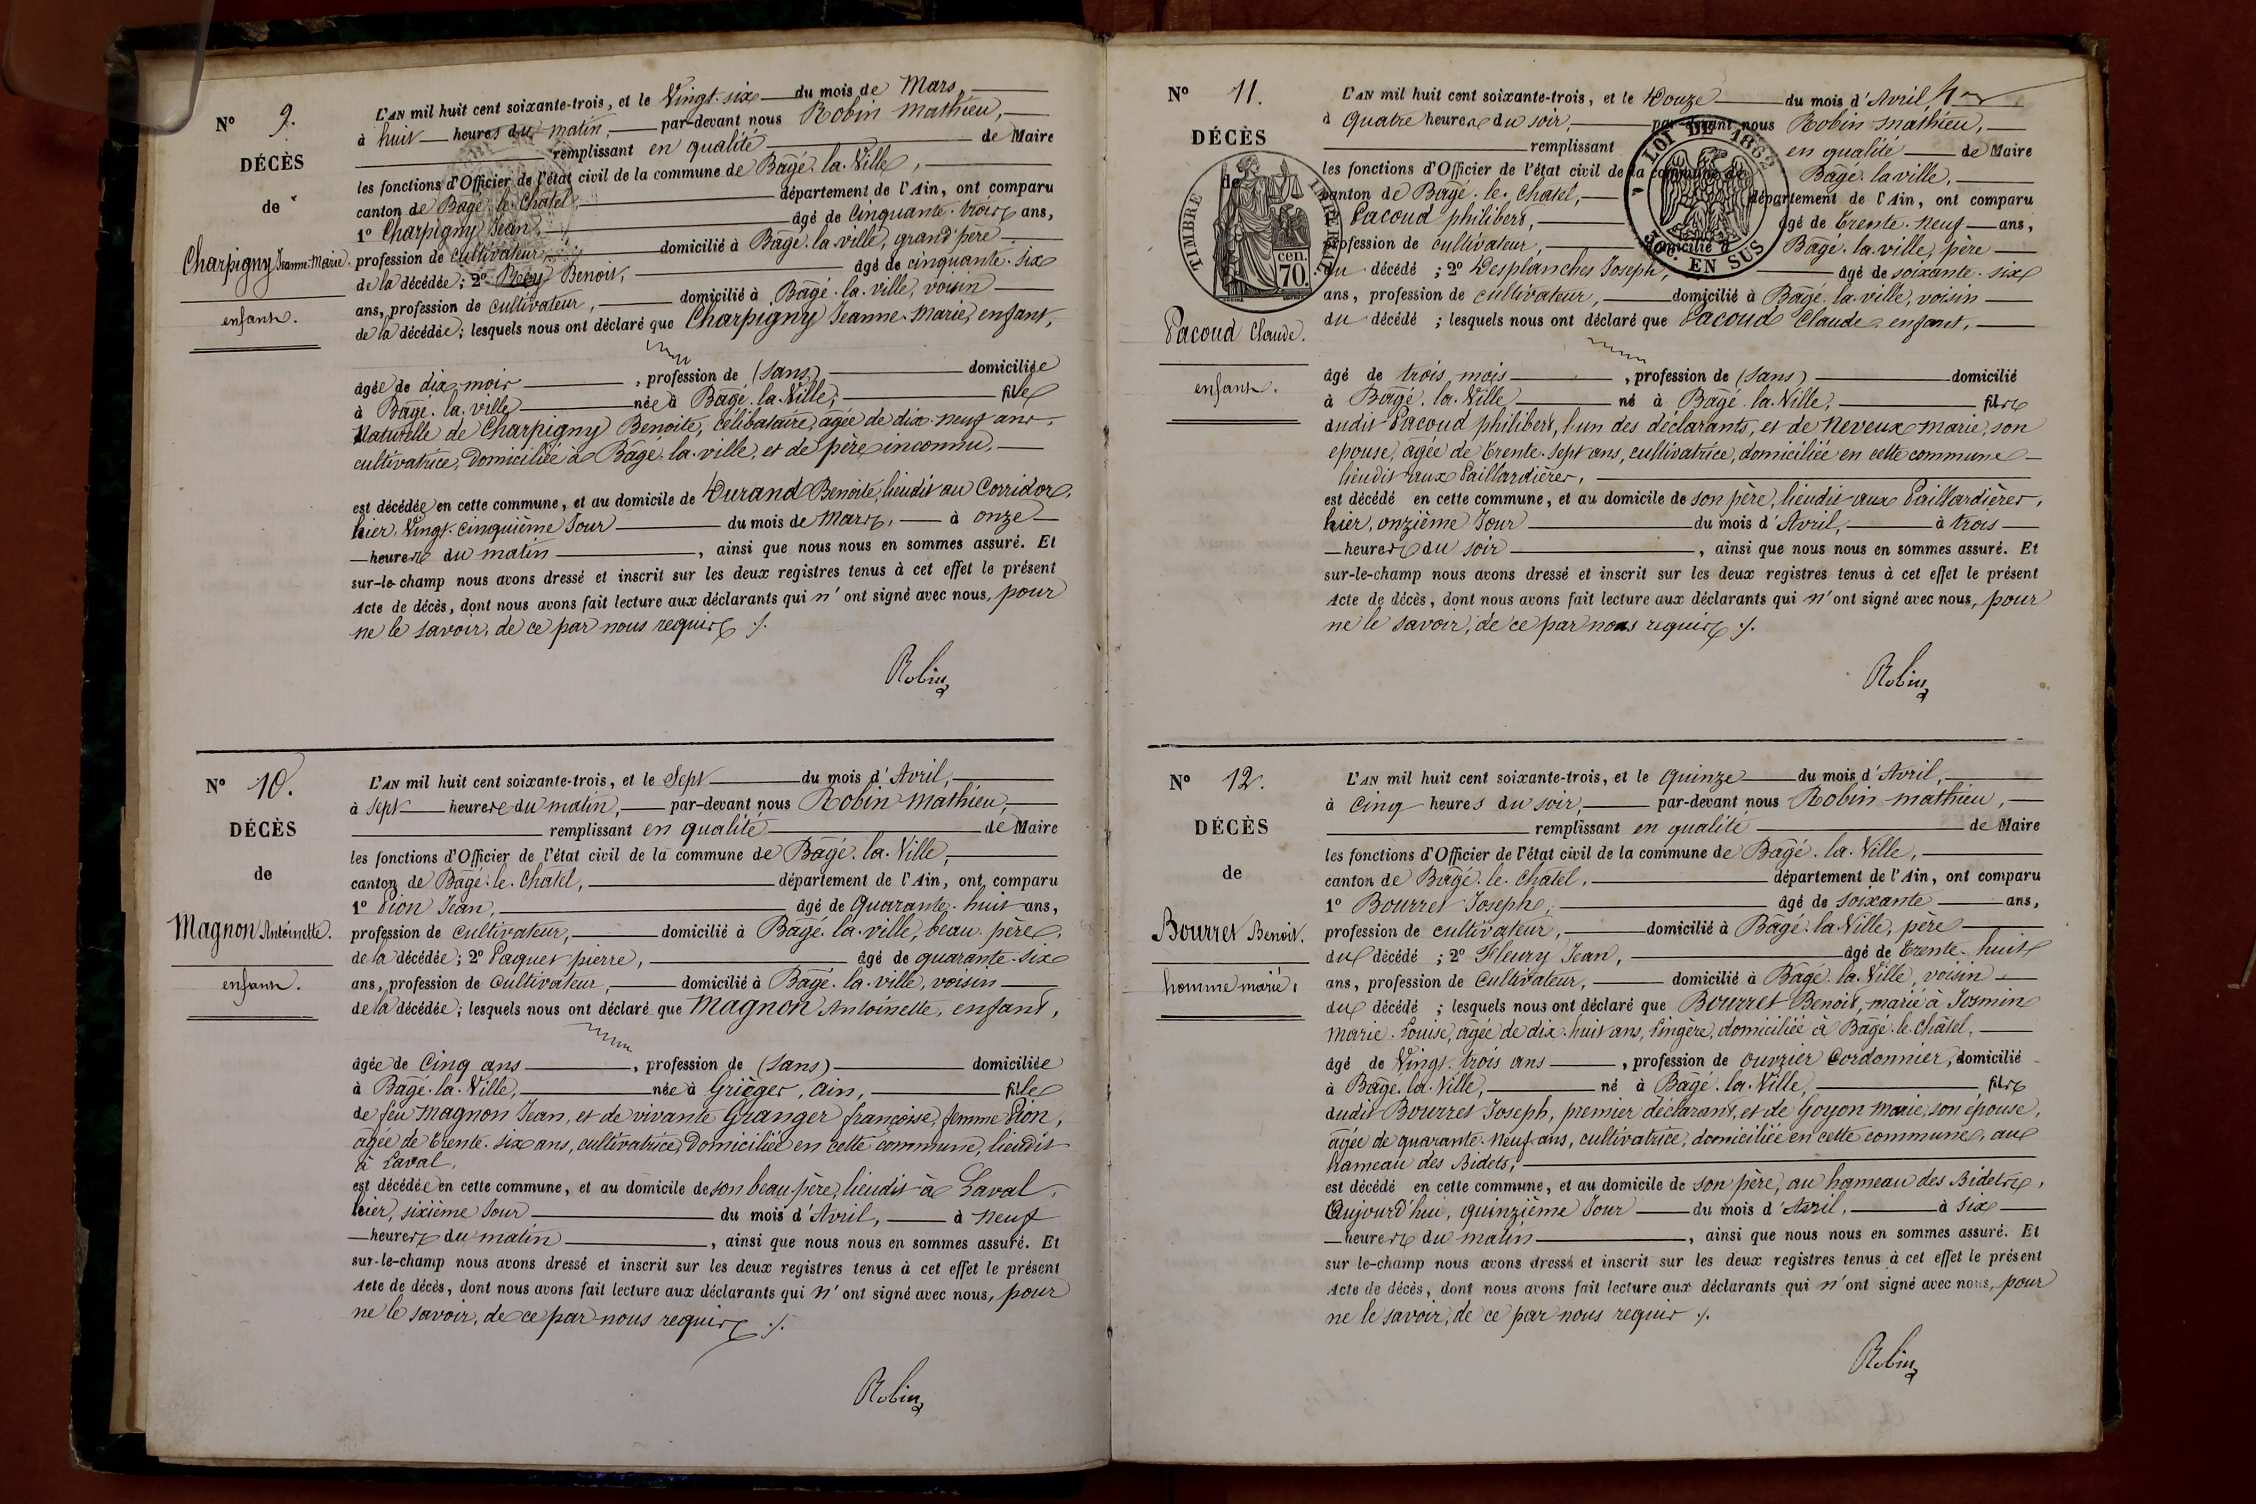 N° 9.
DÉCÈS
de
Charpigny Jeanne-Marie.
enfant.
L'AN mil huit cent soixante-trois, et le Vingt-six du mois de Mars,
à huit heures du matin, par-devant nous Robin Mathieu,
remplissant en qualité de Maire
les fonctions d'Officier de l'état civil de la commune de Bâgé-la-Ville,
canton de Bâgé-le-Châtel, département de l'Ain, ont comparu
1° Charpigny Jean, âgé de Cinquante-trois ans,
profession de cultivateur, domicilié à Bâgé-la-ville, grand'père
de la décédée ; 2° Benoit, âgé de cinquante-six
ans, profession de cultivateur, domicilié à Bâgé-la-ville, voisin
de la décédée ; lesquels nous ont déclaré que Charpigny Jeanne-Marie, enfant,
âgée de dix mois, profession de (sans) domiciliée
à Bâgé-la-ville née à Bâgé-la-Ville, fille
Naturelle de Charpigny Benoite, célibataire, âgée de dix-neuf ans,
cultivatrice, domiciliée à Bâgé-la-ville, et de père inconnu,
est décédée en cette commune, et au domicile de Durand Benoite, lieudit au Corridor,
hier, Vingt-cinquième Jour du mois de Mars, à onze
heures du matin, ainsi que nous nous en sommes assuré. Et
sur-le-champ nous avons dressé et inscrit sur les deux registres tenus à cet effet le présent
Acte de décès, dont nous avons fait lecture aux déclarants qui n'ont signé avec nous, pour
ne le savoir, de ce par nous requis ./.
Robin
N° 10.
DÉCÈS
de
Magnon Antoinette.
enfant.
L'AN mil huit cent soixante-trois, et le Sept du mois d'Avril,
à sept heures du matin, par-devant nous Robin Mathieu,
remplissant en qualité de Maire
les fonctions d'Officier de l'état civil de la commune de Bâgé-la-Ville,
canton de Bâgé-le-Châtel, département de l'Ain, ont comparu
1° Pion Jean, âgé de Quarante-huit ans,
profession de cultivateur, domicilié à Bâgé-la-ville, beau-père
de la décédée ; 2° Paquet pierre, âgé de quarante-six
ans, profession de cultivateur, domicilié à Bâgé-la-ville, voisin
de la décédée ; lesquels nous ont déclaré que Magnon Antoinette, enfant,
âgée de Cinq ans, profession de (sans) domiciliée
à Bâgé-la-Ville, née à Grièges, Ain, fille
de feu Magnon Jean, et de vivante Granger françoise, femme Pion,
âgée de trente-six ans, cultivatrice, domiciliée en cette commune, lieudit
à Laval,
est décédée en cette commune, et au domicile de son beau-père, lieudit à Laval,
hier, sixième Jour du mois d'Avril, à neuf
heures du matin, ainsi que nous nous en sommes assuré. Et
sur-le-champ nous avons dressé et inscrit sur les deux registres tenus à cet effet le présent
Acte de décès, dont nous avons fait lecture aux déclarants qui n'ont signé avec nous, pour
ne le savoir, de ce par nous requis ./.
Robin
N° 11.
DÉCÈS
de
TIMBRE IMPÉRIAL
70 cen.
Pacoud Claude.
enfant.
LOI DE 1862
2 DC. EN SUS
L'AN mil huit cent soixante-trois, et le Douze du mois d'Avril,
à quatre heures du soir, par-devant nous Robin Mathieu,
remplissant en qualité de Maire
les fonctions d'Officier de l'état civil de la commune de Bâgé-la-ville,
canton de Bâgé-le-Châtel, département de l'Ain, ont comparu
1° Pacoud philibert, âgé de trente-neuf ans,
profession de cultivateur, domicilié à Bâgé-la-ville, père
du décédé ; 2° Desplanches Joseph, âgé de soixante-six
ans, profession de cultivateur, domicilié à Bâgé-la-ville, voisin
du décédé ; lesquels nous ont déclaré que Pacoud Claude, enfant,
âgé de trois mois, profession de (sans) domicilié
à Bâgé-la-Ville né à Bâgé-la-Ville, fils
dudit Pacoud philibert, l'un des déclarants, et de Neveux Marie, son
épouse, âgée de trente-sept ans, cultivatrice, domiciliée en cette commune
lieudit aux Paillardières,
est décédé en cette commune, et au domicile de son père, lieudit aux Paillardières,
hier, onzième Jour du mois d'Avril, à trois
heures du soir, ainsi que nous nous en sommes assuré. Et
sur-le-champ nous avons dressé et inscrit sur les deux registres tenus à cet effet le présent
Acte de décès, dont nous avons fait lecture aux déclarants qui n'ont signé avec nous, pour
ne le savoir, de ce par nous requis ./.
Robin
N° 12.
DÉCÈS
de
Bourret Benoit.
homme marié.
L'AN mil huit cent soixante-trois, et le Quinze du mois d'Avril,
à cinq heures du soir, par-devant nous Robin Mathieu,
remplissant en qualité de Maire
les fonctions d'Officier de l'état civil de la commune de Bâgé-la-Ville,
canton de Bâgé-le-Châtel, département de l'Ain, ont comparu
1° Bourret Joseph, âgé de soixante ans,
profession de cultivateur, domicilié à Bâgé-la-Ville, père
du décédé ; 2° Fleury Jean, âgé de trente-huit
ans, profession de cultivateur, domicilié à Bâgé-la-Ville, voisin
du décédé ; lesquels nous ont déclaré que Bourret Benoit, marié à Josmin
Marie-Louise, âgée de dix-huit ans, lingère, domiciliée à Bâgé-le-Châtel,
âgé de Vingt-trois ans, profession de ouvrier Cordonnier, domicilié
à Bâgé-la-Ville, né à Bâgé-la-Ville, fils
dudit Bourret Joseph, premier déclarant, et de Goyon Marie, son épouse,
âgée de quarante-neuf ans, cultivatrice, domiciliée en cette commune, au
hameau des Bidets,
est décédé en cette commune, et au domicile de son père, au hameau des Bidets,
Aujourd'hui, quinzième Jour du mois d'Avril, à six
heures du matin, ainsi que nous nous en sommes assuré. Et
sur-le-champ nous avons dressé et inscrit sur les deux registres tenus à cet effet le présent
Acte de décès, dont nous avons fait lecture aux déclarants qui n'ont signé avec nous, pour
ne le savoir, de ce par nous requis ./.
Robin